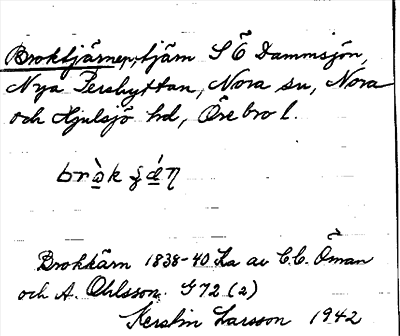 Broktjärnen, tjärn S Ö Dammsjön,
Nya Pershyttan, Nora sn, Nora
och Hjulsjö hd, Örebro l.
Brokkärn 1838-40 Ka av C.C. Öman
och A. Ohlsson. G 72 (2)
Kerstin Larsson 1942